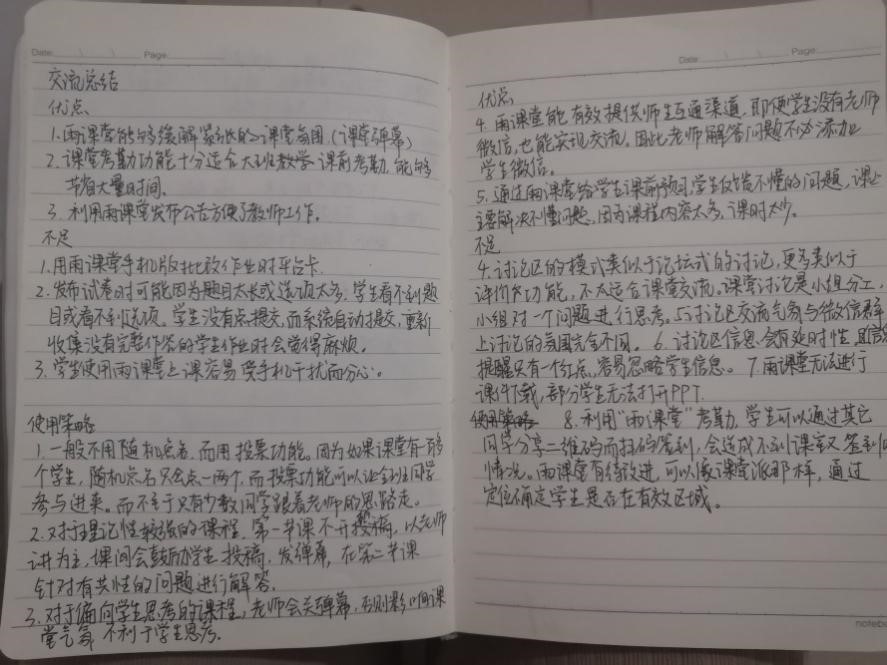 Date: / / Page:
交流总结
优点
1.雨课堂能够缓解紧张的课堂氛围（课堂弹幕）
2.课堂考勤功能十分适合大班教学 课前考勤,能够
节省大量时间.
3. 利用雨课堂发布公告方便了教师工作。
不足
1.用雨课堂手机版批改作业时平台卡.
2.发布试卷时可能因为题目太长或选项太多,学生看不到题
目或看不到选项。学生没有点提交,而系统自动提交,重新
收集没有完整作答的学生作业时会觉得麻烦。
3.学生使用雨课堂上课容易受手机干扰而分心。
使用策略
1.一般不用随机点名,而用投票功能。因为如果课堂有一百多
个学生,随机点名只会点一两个,而投票功能可以让全班同学
参与进来。而不至于只有少数同学跟着老师的思路走。
2.对于理论性较强的课程,第一节课不开投稿,以老师
讲为主,课间会鼓励学生投稿,发弹幕,在第二节课
针对有共性的问题进行解答.
3.对于偏向学生思考的课程,老师会关弹幕,否则影响课
堂气氛 不利于学生思考.
Date: / / Page:
优点
4. 雨课堂能有效提供师生互通渠道,即便学生没有老师
微信,也能实现交流。因此老师解答问题不必添加
学生微信。
5.通过雨课堂给学生课前预习,学生反馈不懂的问题,课上
主要解决不懂问题,因为课程内容太多,课时太少。
不足
4.讨论区的模式类似于论坛式的讨论,更多类似于
评价式功能,不太适合课堂交流。课堂讨论是小组分工,
小组对一个问题进行思考。5.讨论区交流气氛与微信群
上讨论的氛围完全不同。6.讨论区信息会有延时性,且信息
提醒只有一个红点,容易忽略学生信息。7.雨课堂无法进行
课件下载,部分学生无法打开PPT.
使用策略 8.利用“雨课堂”考勤,学生可以通过其它
同学分享二维码而扫码签到,会造成不到课堂又签到的
情况。雨课堂有待改进,可以像课堂派那样,通过
定位确定学生是否在有效区域。
noteb